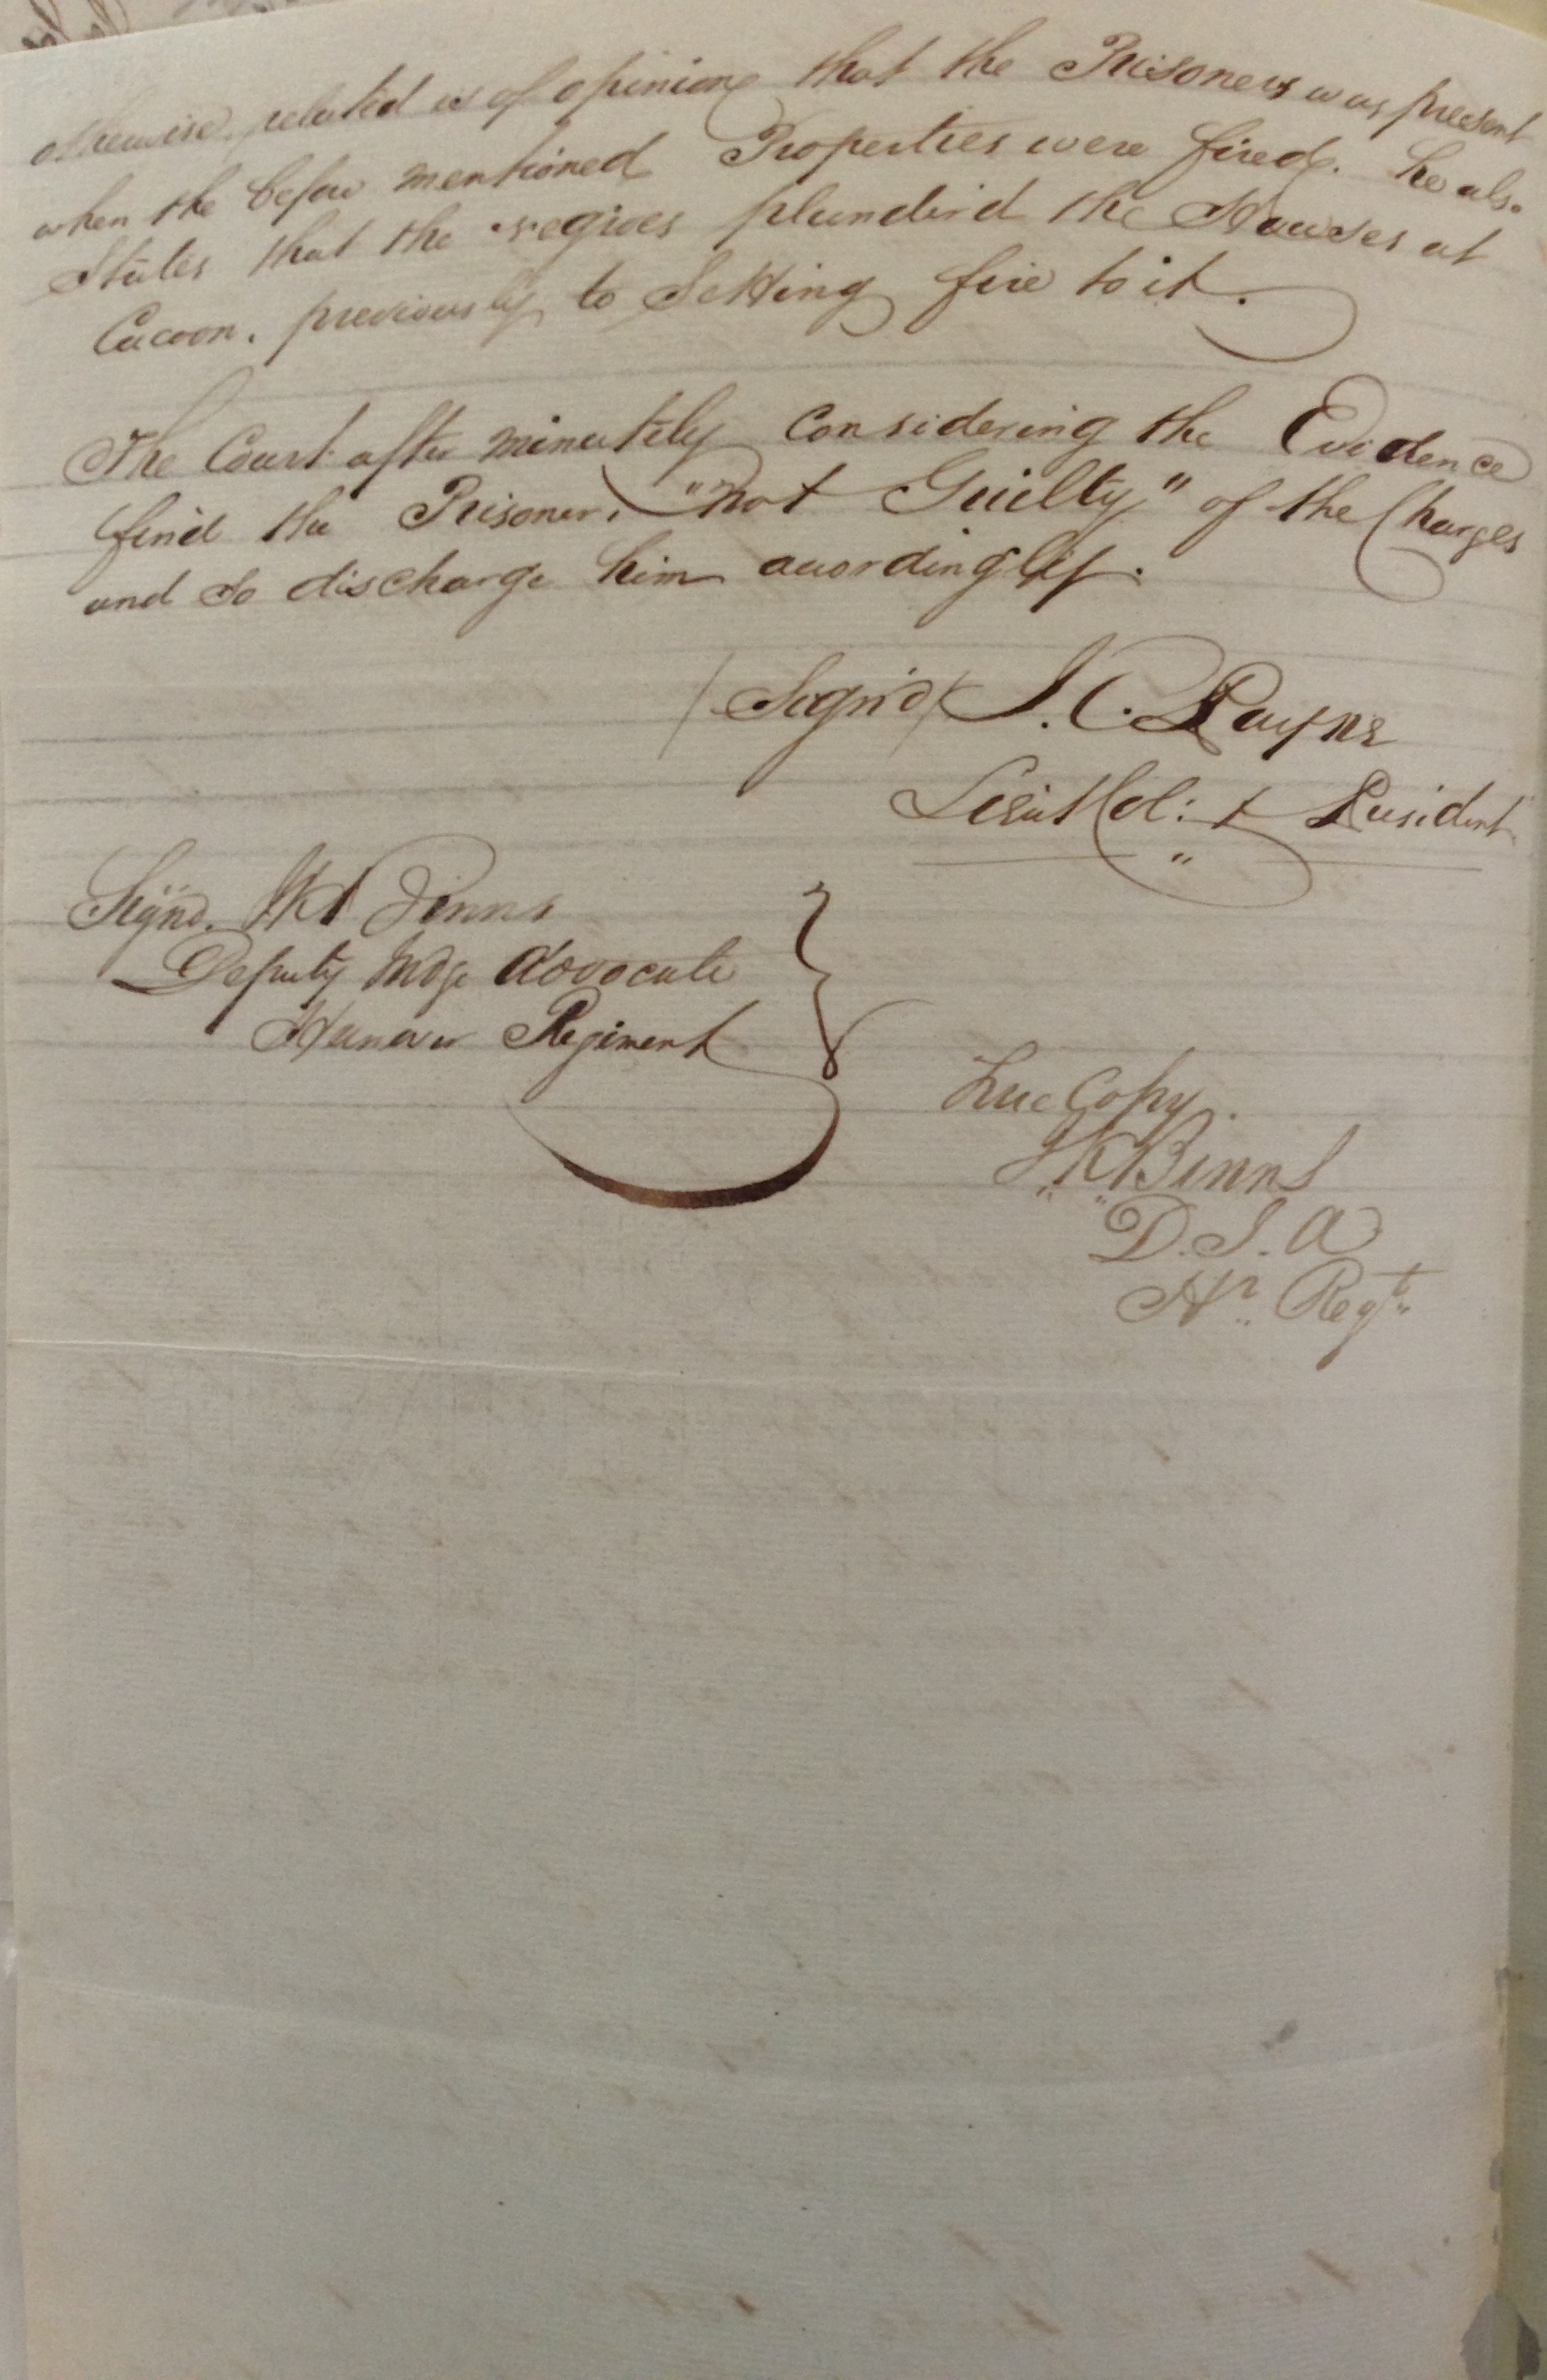 otherwise, related is of opinion that the Prisoners was present
when the before mentioned Properties were fired. he also
States that the negroes plunder'd the Houses at
Cacoon. previously to Setting fire to it.
The Court after minutely Considering the Evidence
find the Prisoner, "not Guilty" of the Charges
and do discharge him acordingly.
/Sign'd/ J. C. Payne
Lieut Col: & President
Signd. JK Binns
Deputy Judge Advocate
Hanover Regiment
True Copy.
JK Binns
D. J. A
Hr. Regt.